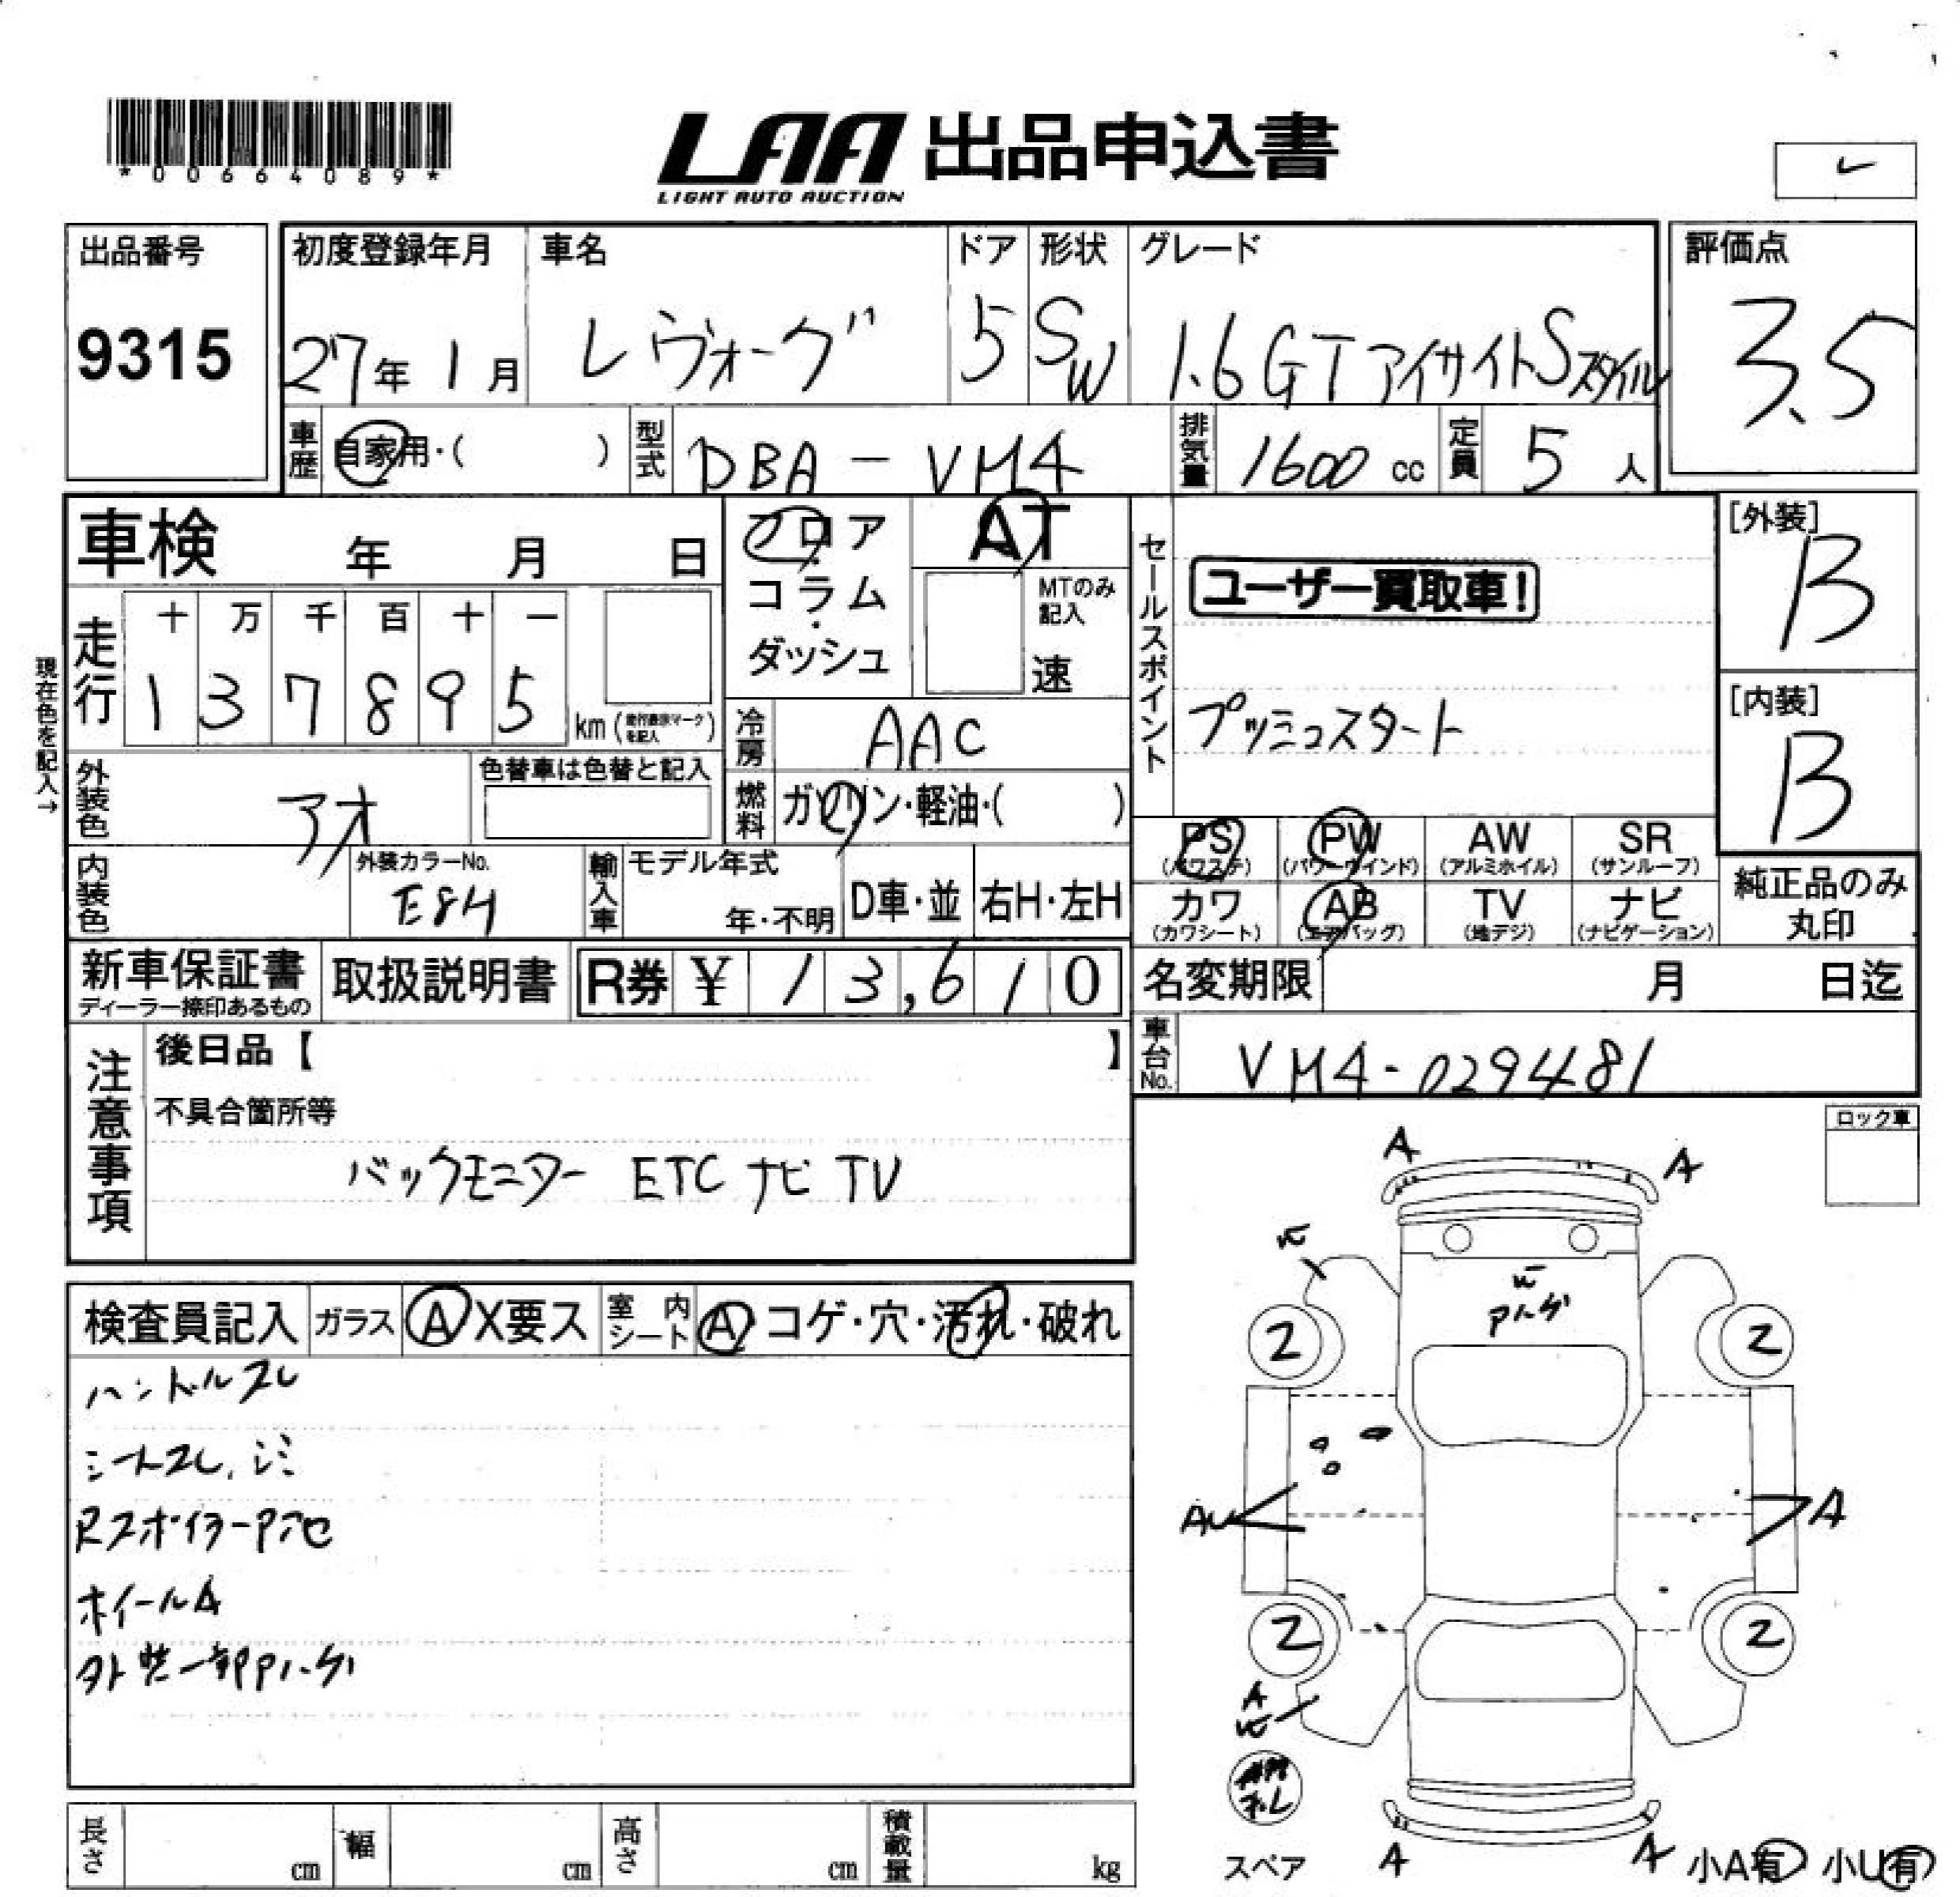 *00664089*
LAA 出品申込書
LIGHT AUTO AUCTION
出品番号
9315
初度登録年月
27年1月
車名
レヴォーグ
ドア
5
形状
SW
グレード
1.6GTアイサイトSスタイル
評価点
3.5
車歴
自家用・( )
型式
DBA-VM4
排気量
1600cc
定員
5人
車検 年 月 日
フロア・コラム・ダッシュ
AT
MTのみ記入
速
セールスポイント
ユーザー買取車!
プッシュスタート
[外装]
B
[内装]
B
現在色を記入→
走行
十 万 千 百 十 一
1 3 7 8 9 5
km (走行表示マークを記入)
冷房
AAC
外装色
アオ
色替車は色替と記入
燃料
ガソリン・軽油・( )
内装色
外装カラーNo.
E84
輸入車
モデル年式
年・不明
D車・並
右H・左H
PS
(パワステ)
PW
(パワーウインド)
AW
(アルミホイル)
SR
(サンルーフ)
カワ
(カワシート)
AB
(エアバッグ)
TV
(地デジ)
ナビ
(ナビゲーション)
純正品のみ
丸印
新車保証書
ディーラー捺印あるもの
取扱説明書
R券 ¥ 13,610
名変期限 月 日迄
車台No.
VM4-0294481
注意事項
後日品【 】
不具合箇所等
バックモニター ETC ナビ TV
ロック車
検査員記入
ガラス
A X要ス
室内シート
A コゲ・穴・汚れ・破れ
ハンドルスレ
シートスレ、シミ
RスポイラーPアセ
ホイールA
外装一部Pハゲ
A
A
2
2
A
2
2
A
A
A
スペア
小A有 小U有
長さ cm
幅 cm
高さ cm
積載量 kg